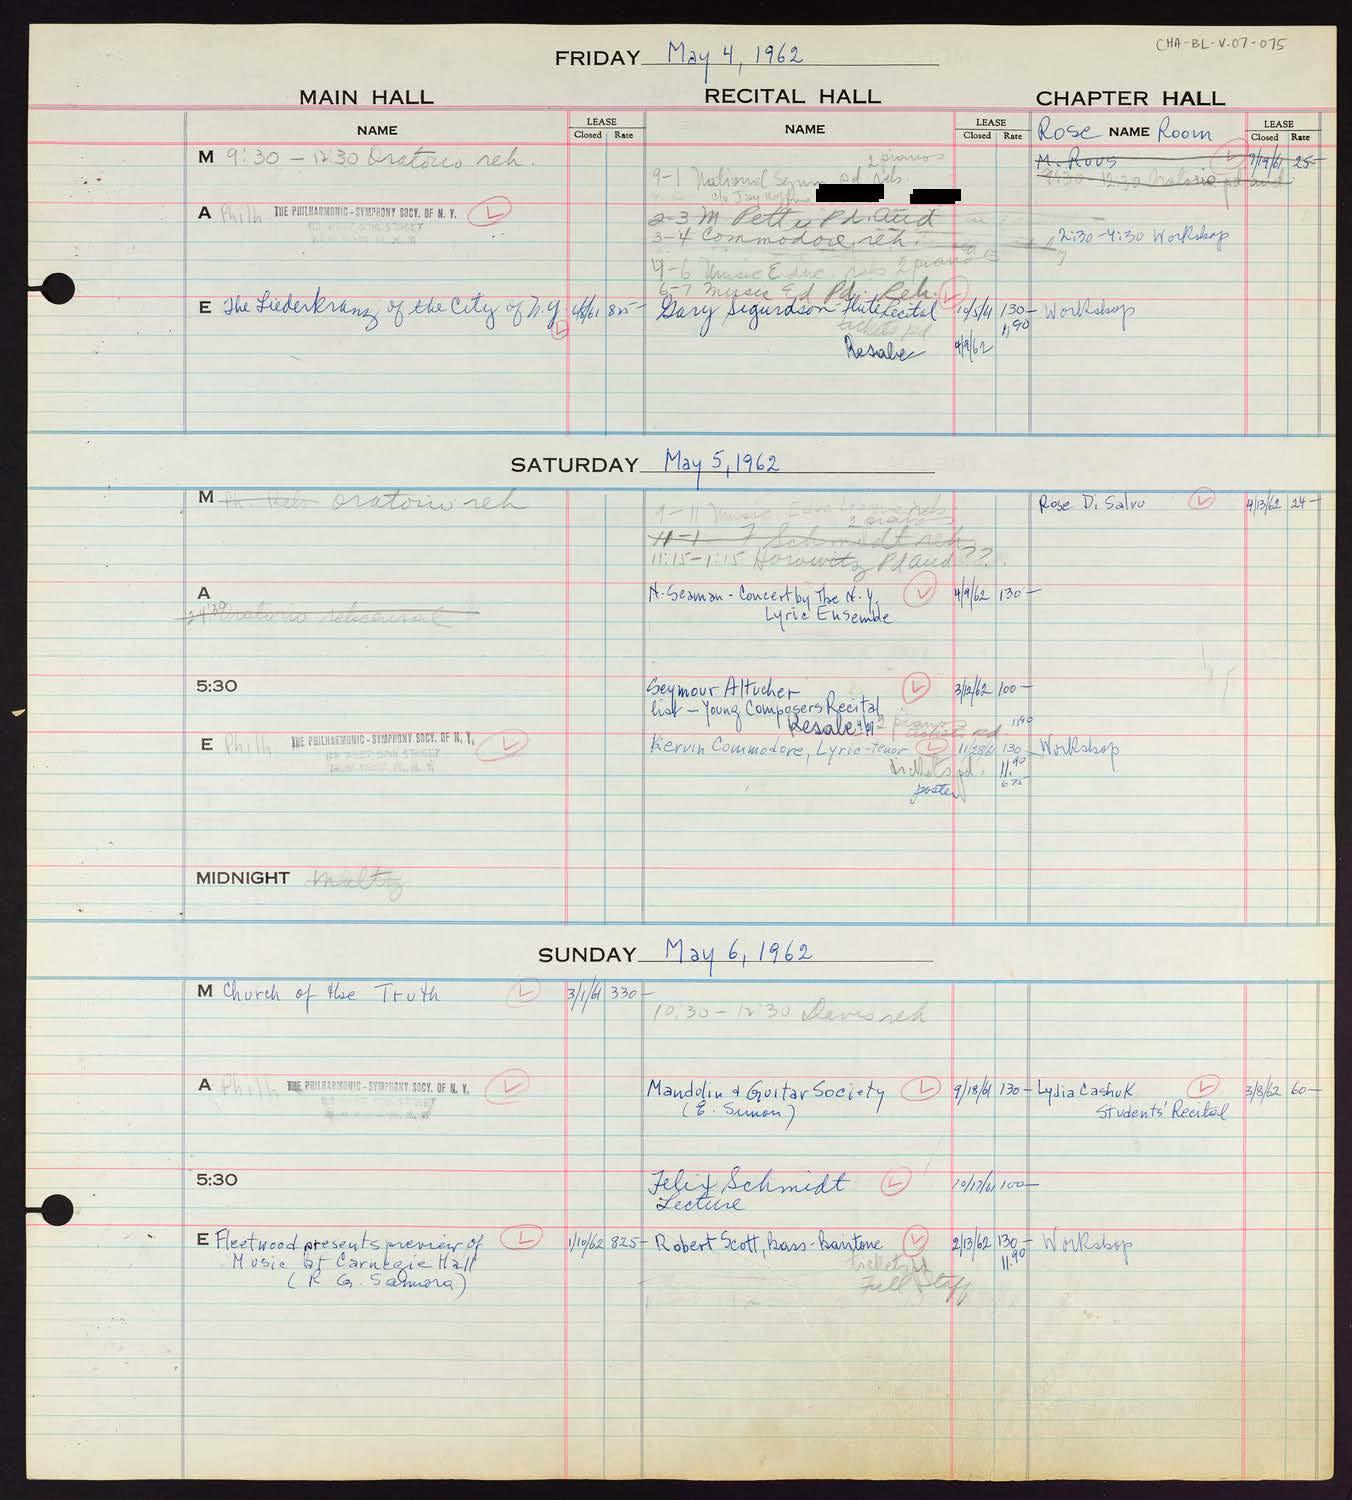 CHA-BL-V.07-075
FRIDAY May 4, 1962
MAIN HALL RECITAL HALL CHAPTER HALL
NAME LEASE Closed Rate NAME LEASE Closed Rate Rose NAME Room LEASE Closed Rate
M 9:30 - 12:30 Oratorio reh.
2 pianos
9-1 National Symp
M. Rous 7/19/61 25-
9:30 - 12:30 Oratorio pd aud.
A Philh THE PHILHARMONIC-SYMPHONY SOCY. OF N. Y.
2-3 M Petty Pd. aud
3-4 Commodore reh.
2:30-4:30 Workshop
4-6 Music Educ. reh 2 pianos
6-7 Music Ed Pd. Reh.
E The Liederkranz of the City of N.Y. 825- Gary Sigurdson-Flute Recital 10/5/61 130- Workshop
tickets pd 11.90
Resale 4/9/62
SATURDAY May 5, 1962
M Ph. Reh Oratorio reh
Rose Di Salvo 4/13/62 24-
2 pianos
11-1 F Schmidt reh.
11:15-1:15 Horowitz Pd aud??
A N. Seaman - Concert by the N.Y. 4/9/62 130-
Lyric Ensemble
Oratorio rehearsal
5:30 Seymour Altucher 3/12/62 100-
list - Young Composers Recital
Resale 2 pianos 11.90
E Philh THE PHILHARMONIC-SYMPHONY SOCY. OF N. Y. Kervin Commodore, Lyric-tenor 130 Workshop
tickets pd. 11.90
poster 6.75
MIDNIGHT Maltz
SUNDAY May 6, 1962
M Church of the Truth 3/1/61 330-
10:30-12:30 Davis reh
A Philh THE PHILHARMONIC-SYMPHONY SOCY. OF N. Y. Mandolin & Guitar Society 9/18/61 130- Lydia Cashuk 3/8/62 60-
(E. Simon) Students' Recital
5:30 Felix Schmidt 10/17/61 100-
Lecture
E Fleetwood presents preview of 1/10/62 825- Robert Scott, Bass-Baritone 2/13/62 130- Workshop
Music at Carnegie Hall tickets 11.90
(R. G. Samora) Full Staff